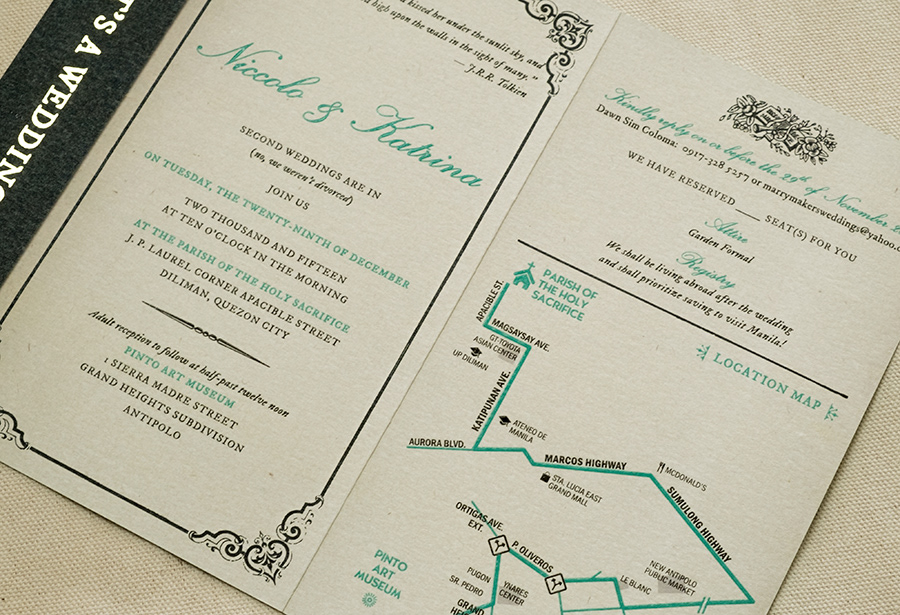 IT'S A WEDDING
kissed her under the sunlit sky, and
high upon the walls in the sight of many."
— J.R.R. Tolkien
Niccolo & Katrina
SECOND WEDDINGS ARE IN
(no, we weren't divorced)
JOIN US
ON TUESDAY, THE TWENTY-NINTH OF DECEMBER
TWO THOUSAND AND FIFTEEN
AT TEN O'CLOCK IN THE MORNING
AT THE PARISH OF THE HOLY SACRIFICE
J. P. LAUREL CORNER APACIBLE STREET
DILIMAN, QUEZON CITY
Adult reception to follow at half-past twelve noon
PINTO ART MUSEUM
1 SIERRA MADRE STREET
GRAND HEIGHTS SUBDIVISION
ANTIPOLO
Kindly reply on or before the 29th of November
Dawn Sim Coloma: 0917-328 5257 or marrymakersweddings@yahoo.c
WE HAVE RESERVED ___ SEAT(S) FOR YOU
Attire
Garden Formal
Registry
We shall be living abroad after the wedding
and shall prioritize saving to visit Manila!
LOCATION MAP
PARISH OF
THE HOLY
SACRIFICE
APACIBLE ST.
MAGSAYSAY AVE.
GT-TOYOTA
ASIAN CENTER
UP DILIMAN
KATIPUNAN AVE.
ATENEO DE
MANILA
AURORA BLVD.
MARCOS HIGHWAY
MCDONALD'S
STA. LUCIA EAST
GRAND MALL
SUMULONG HIGHWAY
ORTIGAS AVE.
EXT.
P. OLIVEROS
NEW ANTIPOLO
PUBLIC MARKET
LE BLANC
PINTO
ART
MUSEUM
PUGON
SR. PEDRO
YNARES
CENTER
GRAND